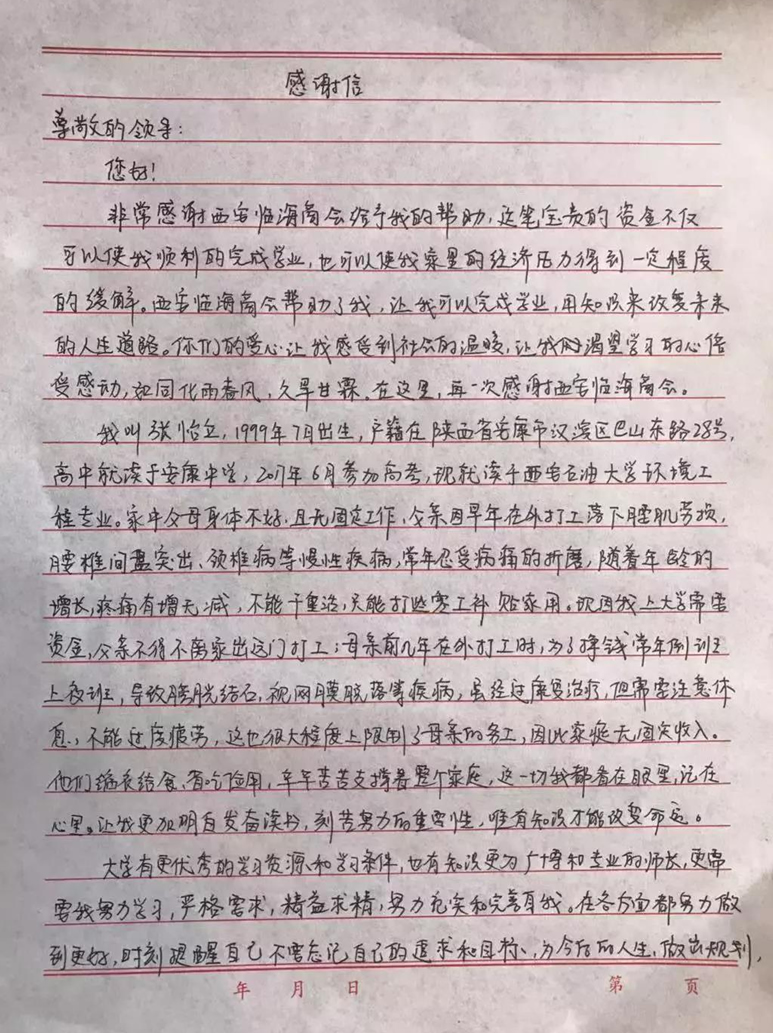 感谢信
尊敬的领导：
您好！
非常感谢西安临海商会给予我的帮助，这笔宝贵的资金不仅
可以使我顺利的完成学业，也可以使我家里的经济压力得到一定程度
的缓解。西安临海商会帮助了我，让我可以完成学业，用知识来改变未来
的人生道路。你们的爱心让我感受到社会的温暖，让我时渴望学习的心倍
受感动，如同化雨春风，久旱甘霖。在这里，再一次感谢西安临海商会。
我叫张怡立，1999年7月出生，户籍在陕西省安康市汉滨区巴山东路28号，
高中就读于安康中学，2017年6月参加高考，现就读于西安石油大学环境工
程专业。家中父母身体不好，且无固定工作，父亲因早年在外打工落下腰肌劳损，
腰椎间盘突出、颈椎病等慢性疾病，常年忍受病痛的折磨，随着年龄的
增长，疼痛有增无减，不能干重活，只能打些零工补贴家用。现因我上大学需要
资金，父亲不得不离家出远门打工；母亲前几年在外打工时，为了挣钱常年倒班
上夜班，导致膀胱结石，视网膜脱落等疾病，虽经过康复治疗，但需要注意休
息，不能过度疲劳，这也很大程度上限制了母亲的务工，因此家庭无固定收入。
他们缩衣给食、省吃俭用，辛辛苦苦支撑着整个家庭，这一切我都看在眼里，记在
心里。让我更加明白发奋读书，刻苦努力的重要性，唯有知识才能改变命运。
大学有更优秀的学习资源和学习条件，也有知识更为广博和专业的师长，更需
要我努力学习，严格要求，精益求精，努力充实和完善自我。在各方面都努力做
到更好，时刻提醒自己不要忘记自己的追求和目标、为今后的人生，做出规划，
年 月 日 第 页